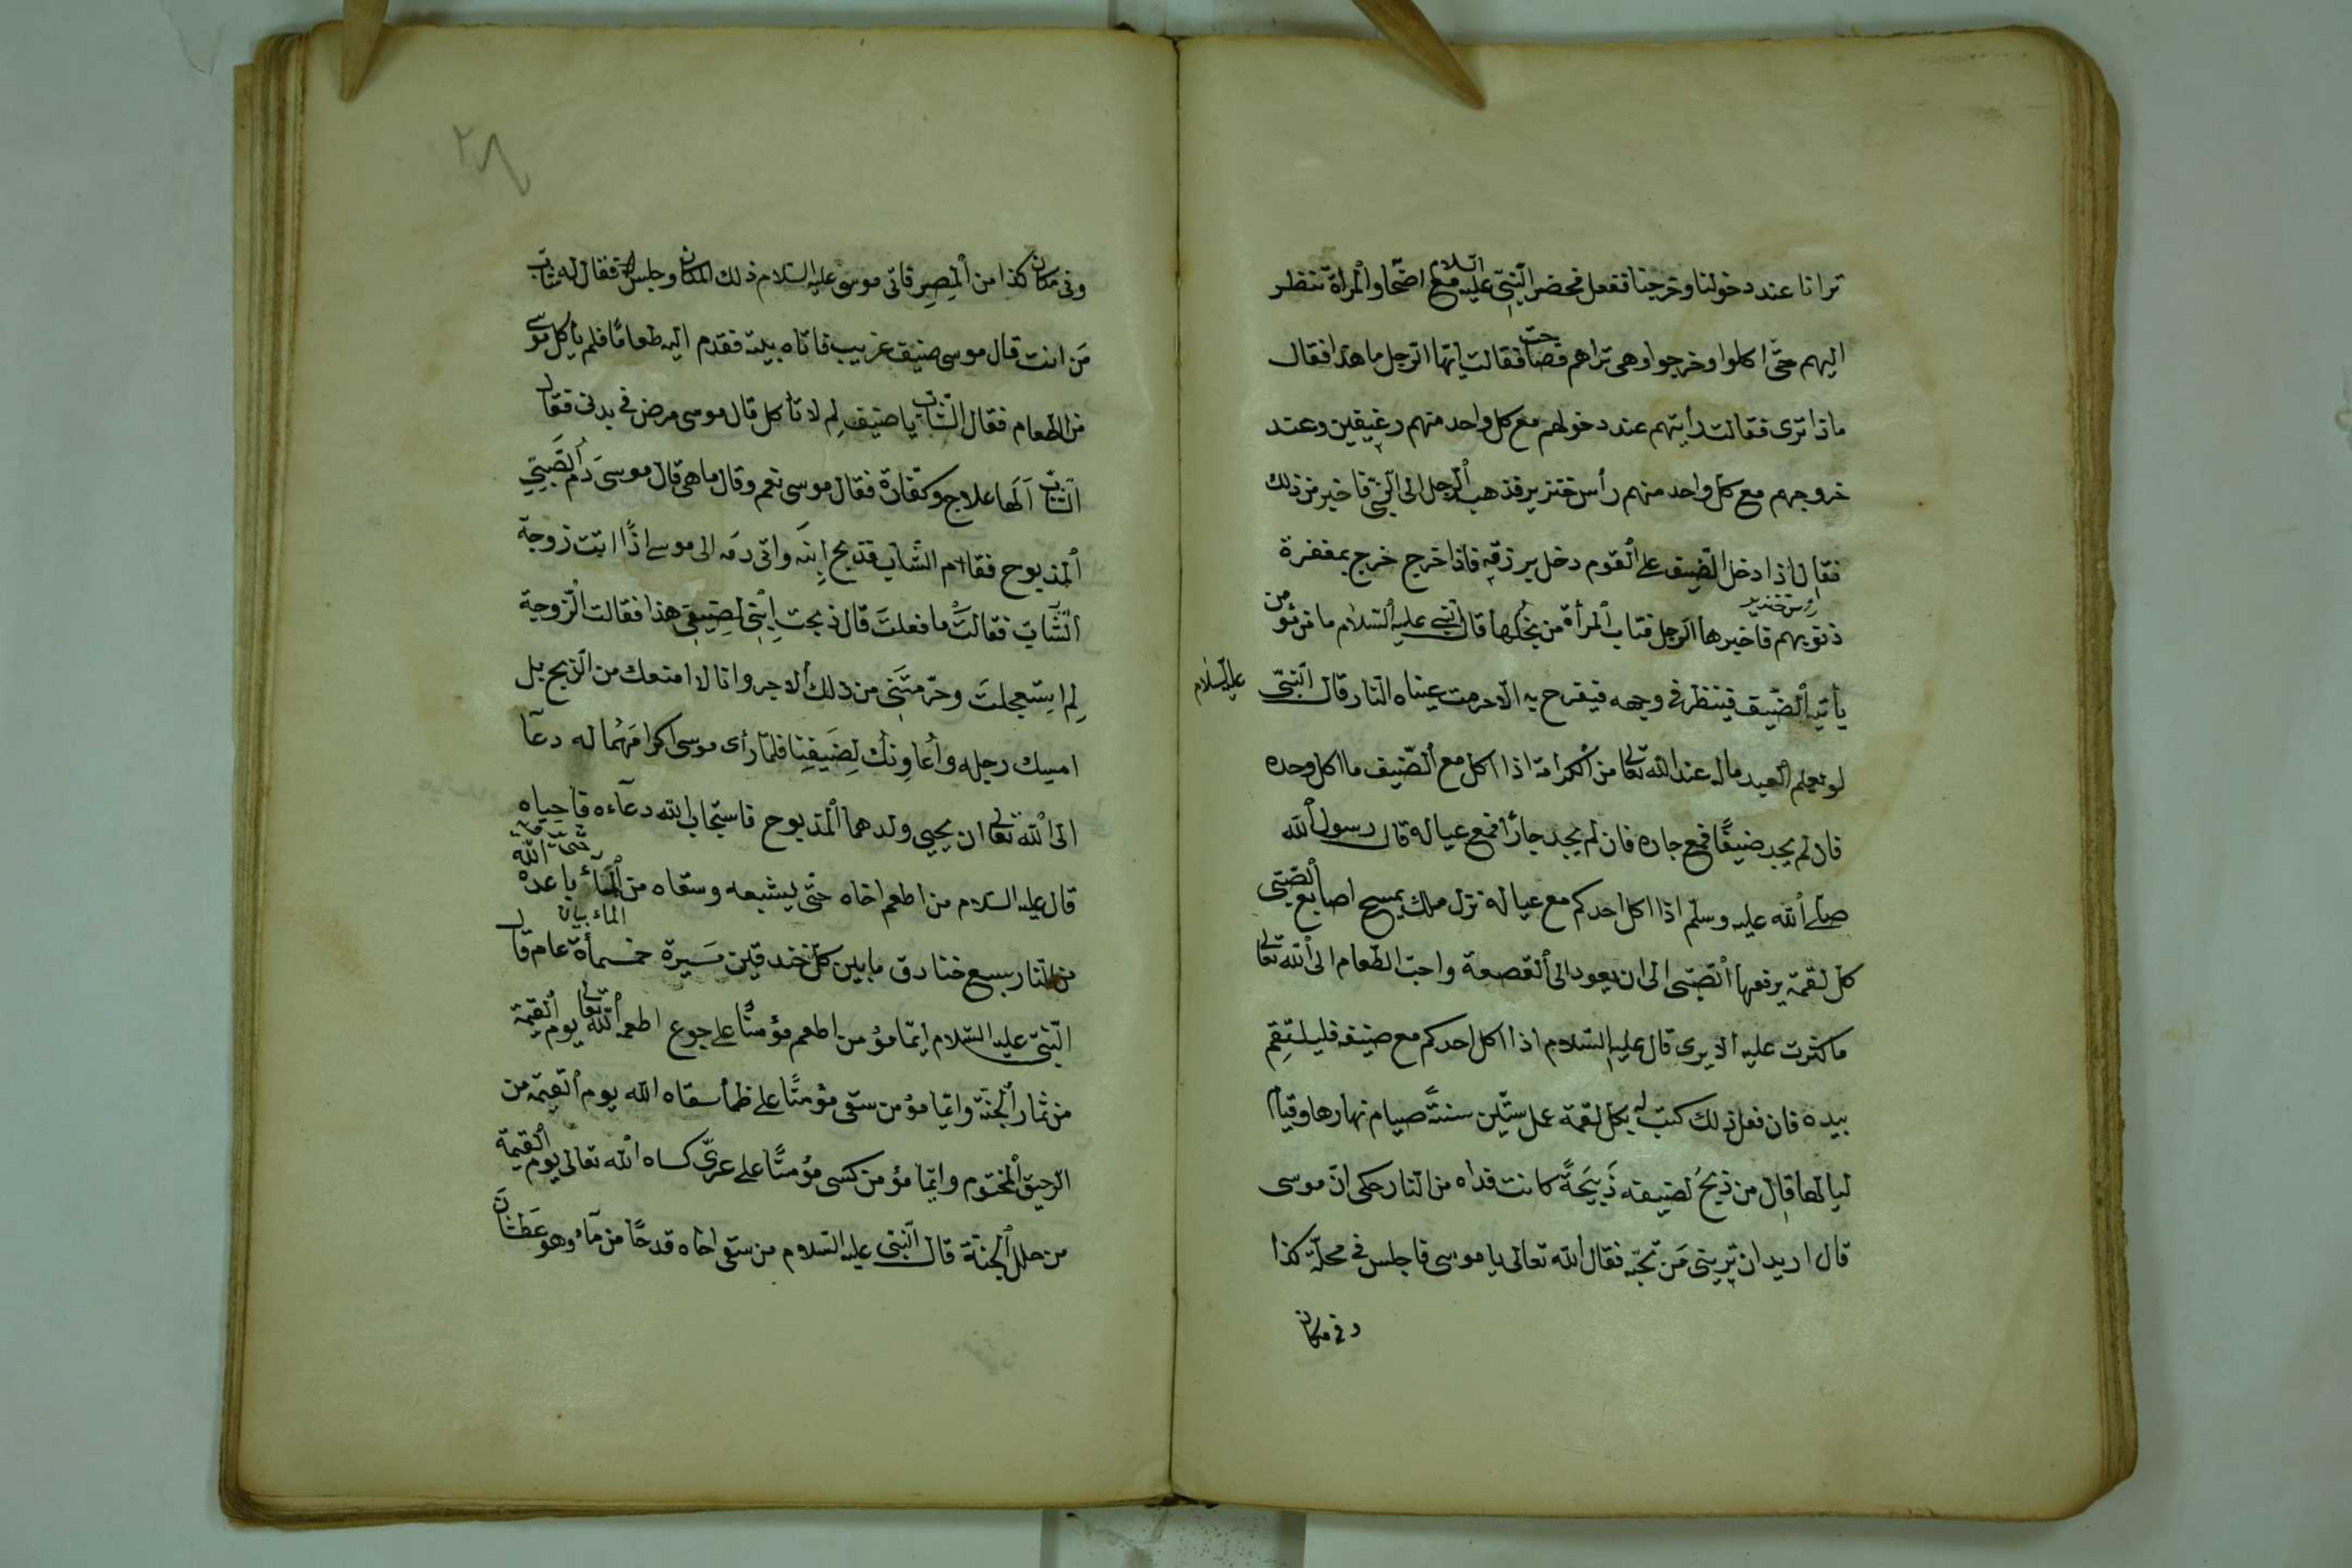 ترانا عند دخولنا وخرجنا ففعل فحضر النّبيّ عليه السلام مع اضحا والمرأة تنظر
اليهم حتّى اكلوا وخرجوا وهى تراهم فقالت ايّها الرجل ما هذا فقال
ماذا ترى فقالت رأيتهم عند دخولهم مع كل واحد منهم رغيفين وعند
خروجهم مع كل واحد منهم رأس خنزير فذهب الرّجل الى النّبيّ فاخبر من ذلك
فقال اذا دخل الضّيف على القوم دخل برزقه فاذا خرج خرج بمغفرة
ذنوبهم فاخبرها الرجل فتاب المرأة من بخلها قال النبى عليه السّلام ما من مؤمن
يأتيه الضّيف فينظر فى وجهه فيفرح به الا حرمت عيناه النار قال النّبىّ عليه السّلام
لو يعلم العبد ماله عند الله تعالى من الكرامة اذا اكل مع الضّيف ما اكل وحده
فان لم يجد ضيفًا فمع جاره فان لم يجد جارًا فمع عياله قال رسول الله
صلّى الله عليه وسلّم اذا اكل احدكم مع عياله نزل ملك يمسح اصابع الصّبّى
كل لقمة يرفعها الصّبّى الى ان يعود الى القصعة واحبّ الطّعام الى الله تعالى
ما كثرت عليه الايرى قال عليه السّلام اذا اكل احدكم مع ضيفه فليلتقم
بيده فان فعل ذلك كتب له بكل لقمة عمل ستّين سنةً صيام نهارها وقيام
ليالها قال من ذبح لضيفه ذَبيحَةً كانت فداه من النّار حكى انّ موسى
قال اريد ان ترينى مَن تحبّه فقال الله تعالى يا موسى فاجلس فى محلّة كذا
وفى مكان
وفى مكان كذا من المصر فاتى موسى عليه السّلام ذلك المكان وجلس فقال له شابّ
مَن انت قال موسى ضيف غريب فاتاه بيته فقدم اليه طعامًا فلم يأكل موسى
من الطعام فقال الشّابّ يا ضيف لِم لا تأكل قال موسى مرض فى بدنى فقال
الشّابّ اَلَها علاج وكفارة فقال موسى نعم وقال ما هى قال موسى دم الصّبىّ
المذبوح فقام الشّاب فذبح اِبنَه واتى دمَه الى موسى اذًا اتت زوجة
الشّابّ فقالتْ ما فعلتَ قال ذبحت اِبْنِى لِضيفى هذا فقالت الزّوجة
لِم اِستعجلتَ وحرّمتَنى من ذلك الاجر وانا لا امنعك من الذّبح بل
امسك رجله وأُعاوِنك لِضَيفِنا فلمّا رأى موسى اكرامَهُما له دعآ
الى الله تعالى ان يحيى ولدهما المذبوح فاستجاب الله دعآءه فاحياه
قال عليه السلام من اطعم اخاه حتّى يشبعه وسقاه من المآء باعده الله
الماء بيان
من النّار سبع خنادق ما بين كلّ خندقين مَسيرة خمسمأة عام قال
النّبىّ عليه السّلام ايّما مؤمن اطعم مؤمنًا على جوع اطعمه الله تعالى يوم القيمة
من ثمار الجنّة وايّما مؤمن سقى مؤمنًا على ظمأ سقاه الله يوم القيمة من
الرّحيق المختوم وايّما مؤمن كسى مؤمنًا على عرىّ كساه الله تعالى يوم القيمة
من حلل الجنّة قال النّبى عليه السّلام من سقى اخاه قدحًا من مآء وهو عَطشان